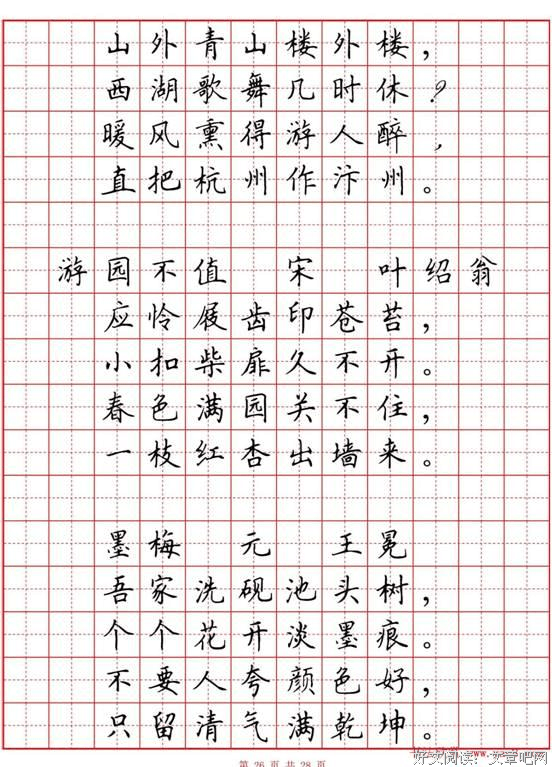 山外青山楼外楼，
西湖歌舞几时休？
暖风熏得游人醉，
直把杭州作汴州。
游园不值 宋 叶绍翁
应怜屐齿印苍苔，
小扣柴扉久不开。
春色满园关不住，
一枝红杏出墙来。
墨梅 元 王冕
吾家洗砚池头树，
个个花开淡墨痕。
不要人夸颜色好，
只留清气满乾坤。
第 26 页 共 28 页
好文阅读：文章吧网